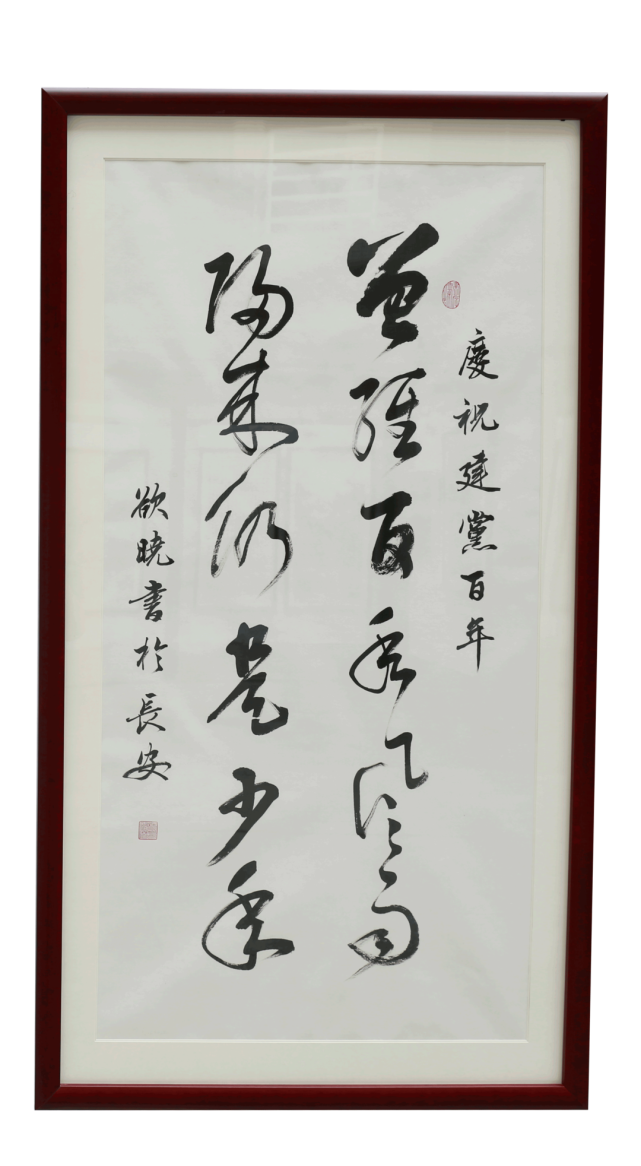 慶祝建黨百年
曾經百年風雨
歸來仍是少年
欲曉書於長安